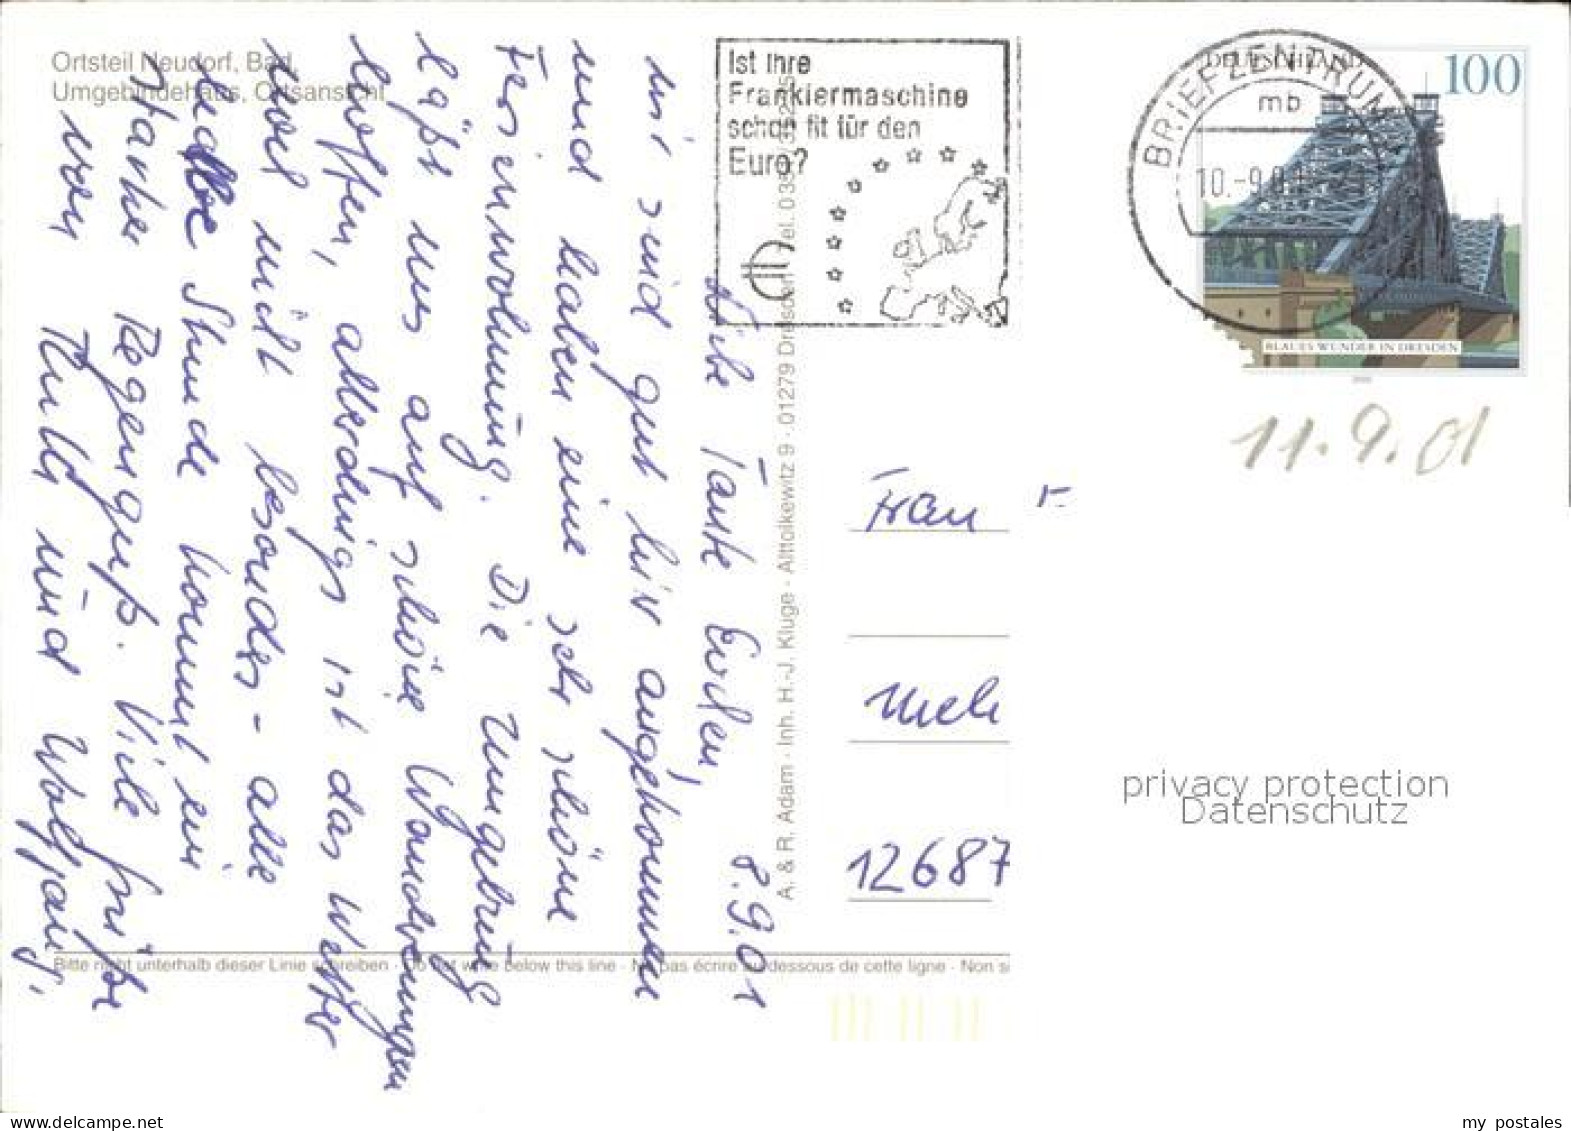 Ortsteil Neudorf, Bad,
Umgebindehaus, Ortsansicht
Ist Ihre
Frankiermaschine
schon fit für den
Euro?
BRIEFZENTRUM
mb
10.-9.01
DEUTSCHLAND
100
BLAUES WUNDER IN DRESDEN
11.9.01
8.9.01
Liebe Tante Evchen,
wir sind gut hier angekommen
und haben eine sehr schöne
Ferienwohnung. Die Umgebung
läßt uns auf schöne Wanderungen
hoffen, allerdings ist das Wetter
noch nicht besonders - alle
halbe Stunde kommt ein
starker Regenguß. Viele Grüße
von Ruth und Wolfgang.
A. & R. Adam · Inh. H.-J. Kluge · Alttolkewitz 9 · 01279 Dresden · Tel. 035
Frau
12687
Bitte nicht unterhalb dieser Linie schreiben · Do not write below this line · Ne pas écrire au-dessous de cette ligne · Non si
privacy protection
Datenschutz
my postales